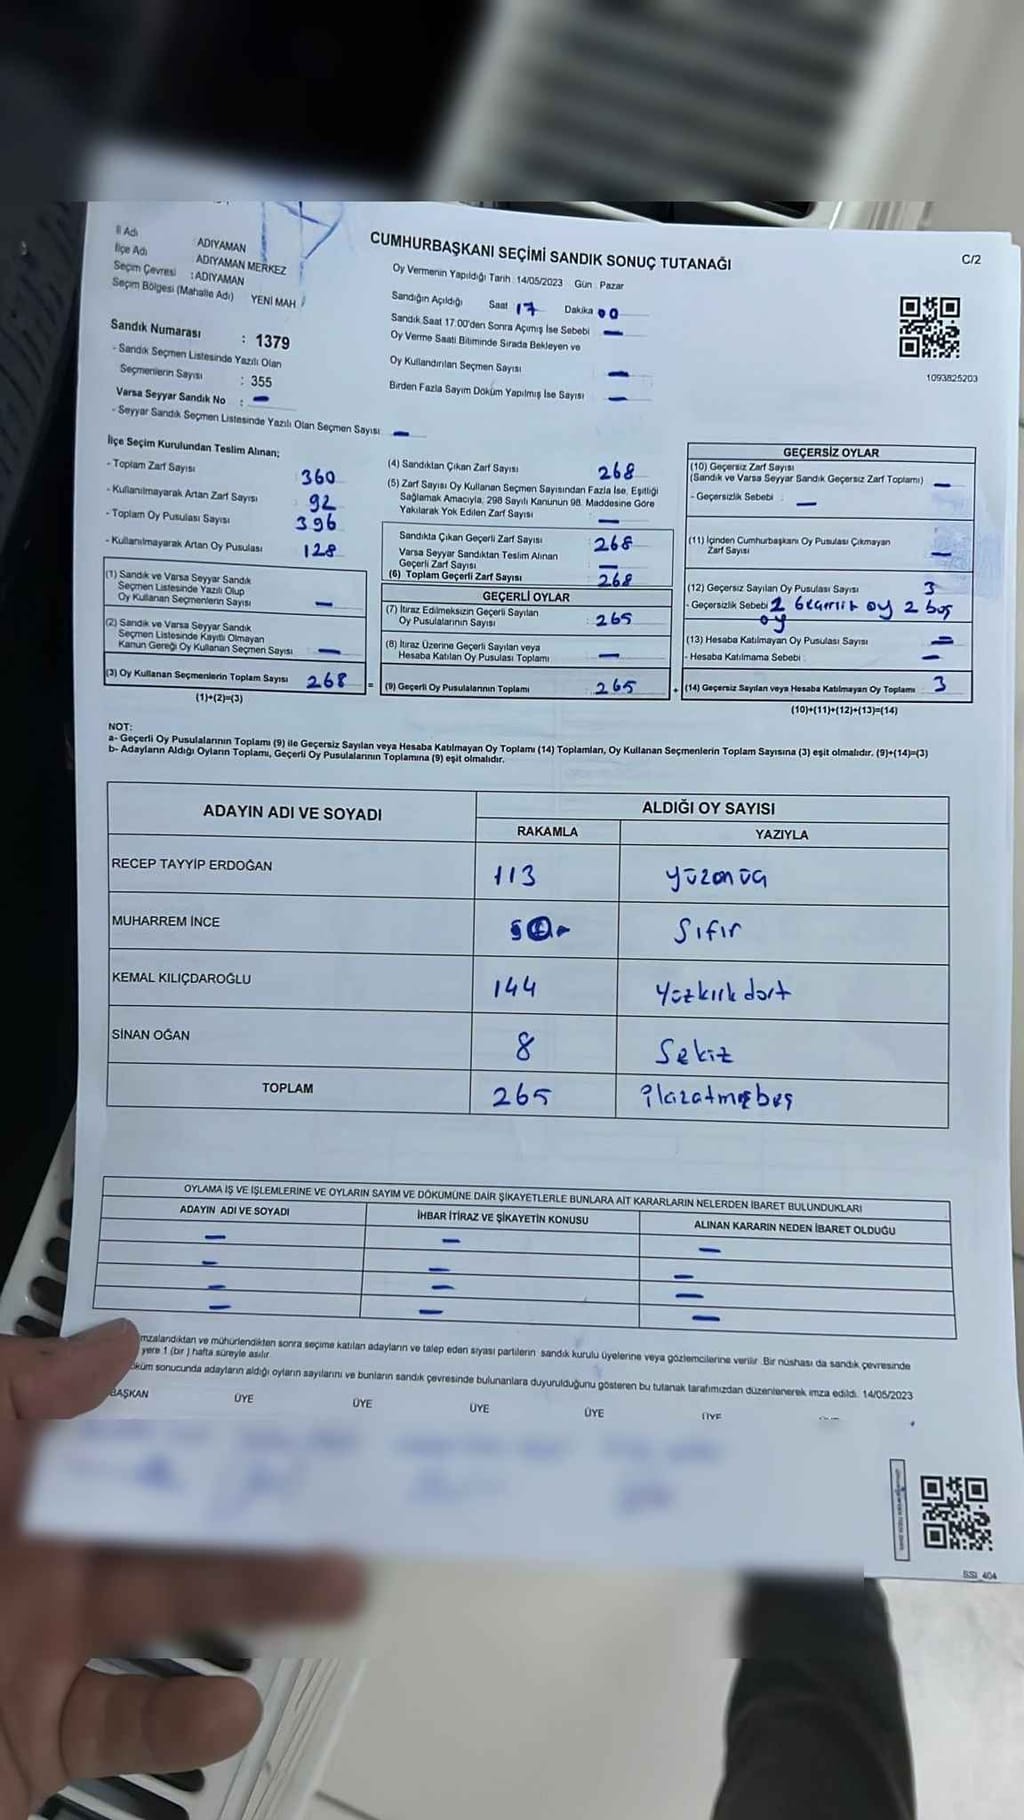 CUMHURBAŞKANI SEÇİMİ SANDIK SONUÇ TUTANAĞI
C/2
İl Adı : ADIYAMAN
İlçe Adı : ADIYAMAN MERKEZ
Seçim Çevresi : ADIYAMAN
Seçim Bölgesi (Mahalle Adı) YENİ MAH /
Sandık Numarası : 1379
- Sandık Seçmen Listesinde Yazılı Olan
Seçmenlerin Sayısı : 355
Varsa Seyyar Sandık No : -
- Seyyar Sandık Seçmen Listesinde Yazılı Olan Seçmen Sayısı -
Oy Vermenin Yapıldığı Tarih : 14/05/2023 Gün : Pazar
Sandığın Açıldığı Saat 17 Dakika 00
Sandık Saat 17:00'den Sonra Açımış İse Sebebi -
Oy Verme Saati Bitiminde Sırada Bekleyen ve
Oy Kullandırılan Seçmen Sayısı -
Birden Fazla Sayım Döküm Yapılmış İse Sayısı -
1093825203
İlçe Seçim Kurulundan Teslim Alınan;
- Toplam Zarf Sayısı 360
- Kullanılmayarak Artan Zarf Sayısı 92
- Toplam Oy Pusulası Sayısı 396
- Kullanılmayarak Artan Oy Pusulası 128
(1) Sandık ve Varsa Seyyar Sandık
Seçmen Listesinde Yazılı Olup
Oy Kullanan Seçmenlerin Sayısı -
(2) Sandık ve Varsa Seyyar Sandık
Seçmen Listesinde Kayıtlı Olmayan
Kanun Gereği Oy Kullanan Seçmen Sayısı -
(3) Oy Kullanan Seçmenlerin Toplam Sayısı 268
(1)+(2)=(3)
(4) Sandıktan Çıkan Zarf Sayısı 268
(5) Zarf Sayısı Oy Kullanan Seçmen Sayısından Fazla İse, Eşitliği
Sağlamak Amacıyla, 298 Sayılı Kanunun 98. Maddesine Göre
Yakılarak Yok Edilen Zarf Sayısı -
Sandıkta Çıkan Geçerli Zarf Sayısı 268
Varsa Seyyar Sandıktan Teslim Alınan
Geçerli Zarf Sayısı -
(6) Toplam Geçerli Zarf Sayısı 268
GEÇERLİ OYLAR
(7) İtiraz Edilmeksizin Geçerli Sayılan
Oy Pusulalarının Sayısı 265
(8) İtiraz Üzerine Geçerli Sayılan veya
Hesaba Katılan Oy Pusulası Toplamı -
= (9) Geçerli Oy Pusulalarının Toplamı 265
GEÇERSİZ OYLAR
(10) Geçersiz Zarf Sayısı
(Sandık ve Varsa Seyyar Sandık Geçersiz Zarf Toplamı) -
- Geçersizlik Sebebi : -
(11) İçinden Cumhurbaşkanı Oy Pusulası Çıkmayan
Zarf Sayısı -
(12) Geçersiz Sayılan Oy Pusulası Sayısı 3
- Geçersizlik Sebebi oy 2 boş
oy
(13) Hesaba Katılmayan Oy Pusulası Sayısı -
- Hesaba Katılmama Sebebi : -
+ (14) Geçersiz Sayılan veya Hesaba Katılmayan Oy Toplamı 3
(10)+(11)+(12)+(13)=(14)
NOT:
a- Geçerli Oy Pusulalarının Toplamı (9) ile Geçersiz Sayılan veya Hesaba Katılmayan Oy Toplamı (14) Toplamları, Oy Kullanan Seçmenlerin Toplam Sayısına (3) eşit olmalıdır. (9)+(14)=(3)
b- Adayların Aldığı Oyların Toplamı, Geçerli Oy Pusulalarının Toplamına (9) eşit olmalıdır.
ADAYIN ADI VE SOYADI
ALDIĞI OY SAYISI
RAKAMLA YAZIYLA
RECEP TAYYİP ERDOĞAN 113 yüzonüç
MUHARREM İNCE Sıfır
KEMAL KILIÇDAROĞLU 144 Yüzkırk dört
SİNAN OĞAN 8 Sekiz
TOPLAM 265 ikizatmışbeş
OYLAMA İŞ VE İŞLEMLERİNE VE OYLARIN SAYIM VE DÖKÜMÜNE DAİR ŞİKAYETLERLE BUNLARA AİT KARARLARIN NELERDEN İBARET BULUNDUKLARI
ADAYIN ADI VE SOYADI İHBAR İTİRAZ VE ŞİKAYETİN KONUSU ALINAN KARARIN NEDEN İBARET OLDUĞU
- - -
- - -
- - -
- - -
mzalandıktan ve mühürlendikten sonra seçime katılan adayların ve talep eden siyasi partilerin sandık kurulu üyelerine veya gözlemcilerine verilir. Bir nüshası da sandık çevresinde
yere 1 (bir) hafta süreyle asılır.
öküm sonucunda adayların aldığı oyların sayılarını ve bunların sandık çevresinde bulunanlara duyurulduğunu gösteren bu tutanak tarafımızdan düzenlenerek imza edildi. 14/05/2023
BAŞKAN ÜYE ÜYE ÜYE ÜYE ÜYE
SSI_404